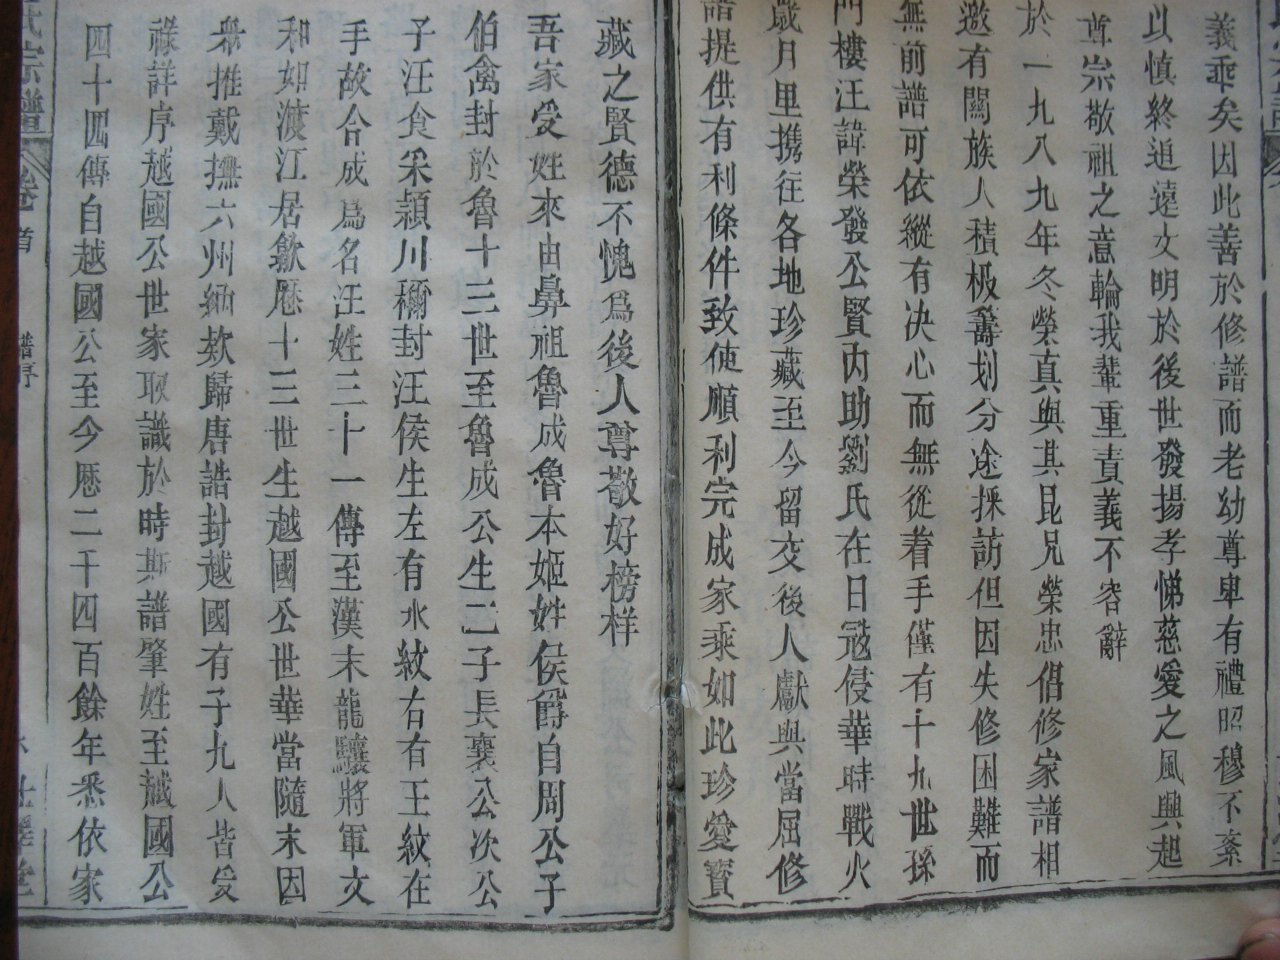 義乖矣因此善於修譜而老幼尊卑有禮昭穆不紊
以慎終追遠文明於後世發揚孝悌慈愛之風興起
尊崇敬祖之意輪我輩重責義不容辭
於一九八九年冬榮真與其昆兄榮忠倡修家譜相
邀有關族人積极籌划分途採訪但因失修困難而
無前譜可依縱有决心而無從着手僅有十九世孫
門樓汪諱榮發公賢內助劉氏在日寇侵華時戰火
歲月里携往各地珍藏至今留交後人獻與當屆修
譜提供有利條件致使順利完成家乘如此珍愛寶
藏之賢德不愧爲後人尊敬好榜样
吾家受姓來由鼻祖魯成魯本姬姓侯爵自周公子
伯禽封於魯十三世至魯成公生二子長襄公次公
子汪食采潁川穪封汪侯生左有水紋右有王紋在
手故合成爲名汪姓三十一傳至漢末龍驤將軍文
和如渡江居歙歷十三世生越國公世華當隨末因
衆推戴撫六州納欵歸唐誥封越國有子九人皆受
祿詳序越國公世家取識於時斯譜肇姓至越國公
四十四傳自越國公至今歷二千四百餘年悉依家
氏宗譜 卷首 譜序